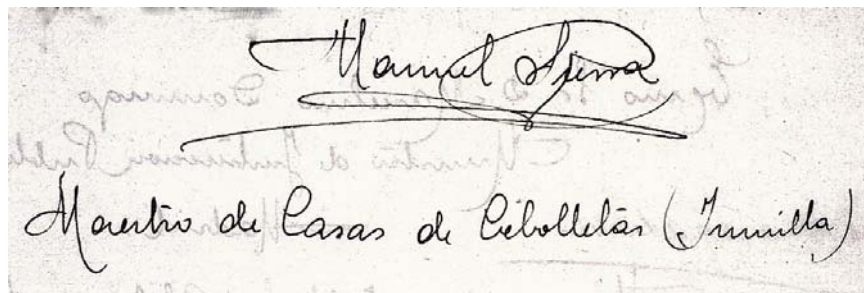 Manuel Sierra
Maestro de Casas de Cibolletas (Jumilla)